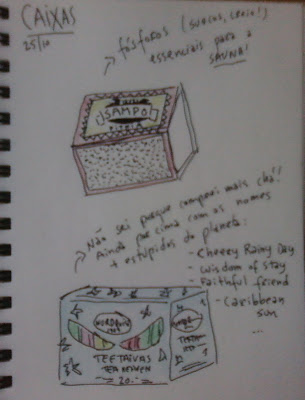 CAIXAS
25/10
fósforos (suecos, creio!)
essenciais para a
SAUNA!
SAMPO
Não sei porque comprei mais chá!
Ainda por cima com os nomes
+ estúpidos do planeta:
- Cheery Rainy Day
- Wisdom of Stay
- Faithful friend
- Caribbean
sun
...
NORDQVIST
TEETAIVAS
TEA HEAVEN
20.-